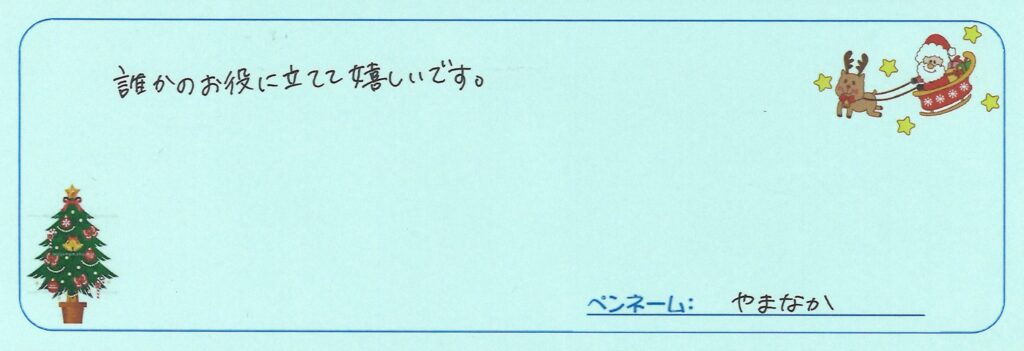 誰かのお役に立てて嬉しいです。
ペンネーム: やまなか